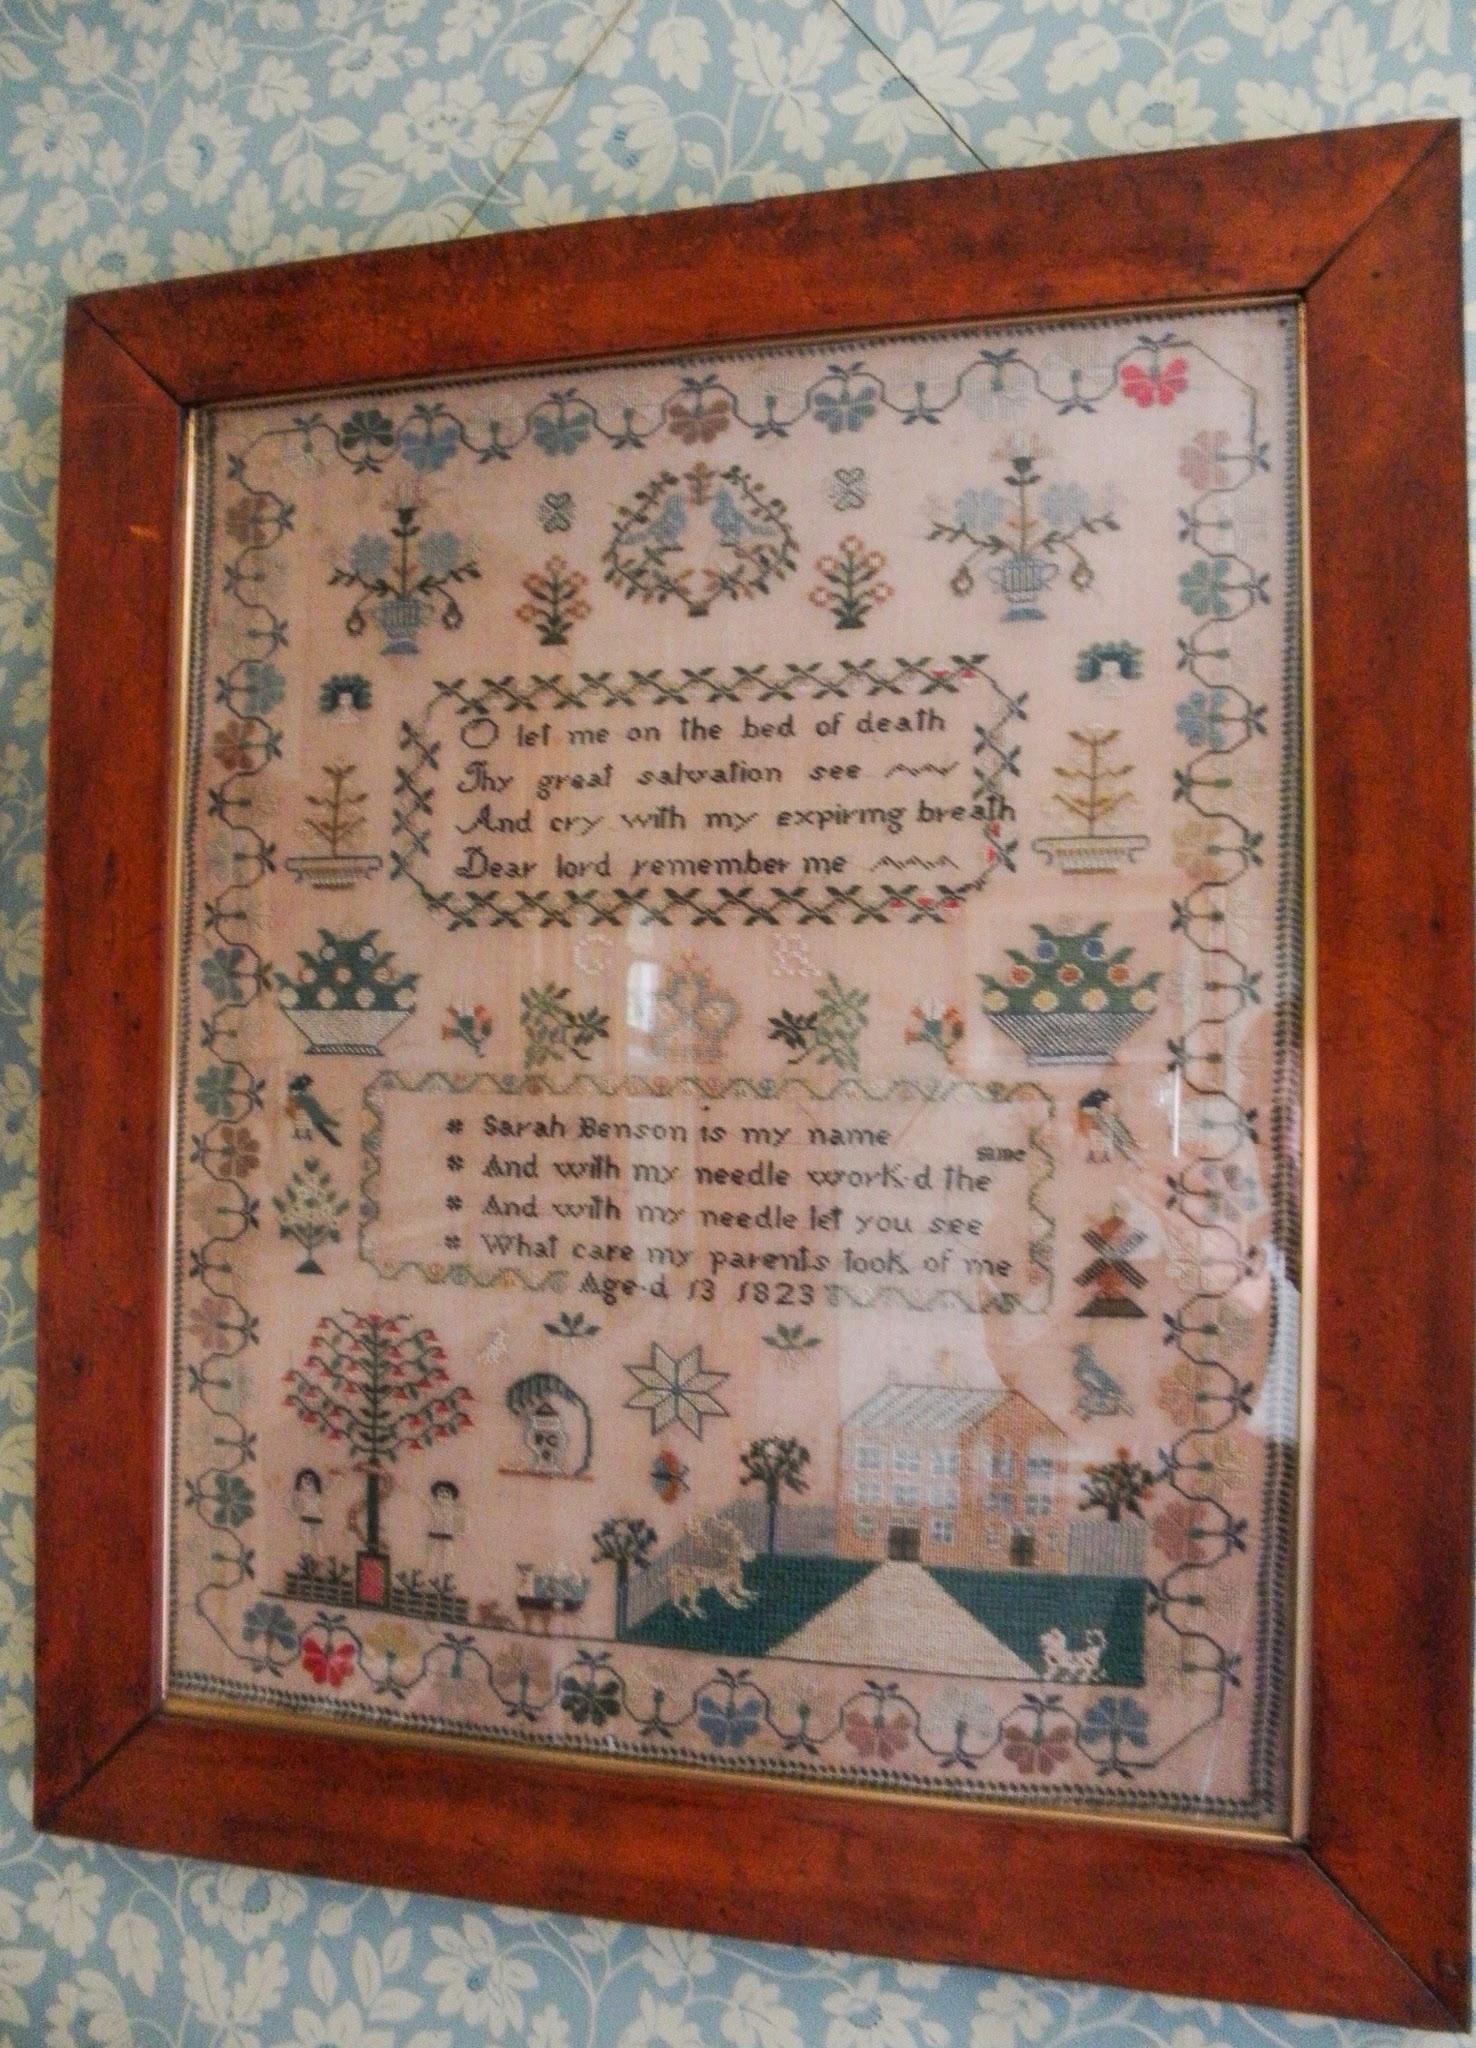 O let me on the bed of death
Thy great salvation see
And cry with my expiring breath
Dear lord remember me
G R
Sarah Benson is my name
same
And with my needle work.d the
And with my needle let you see
What care my parents took of me
Age.d 13 1823